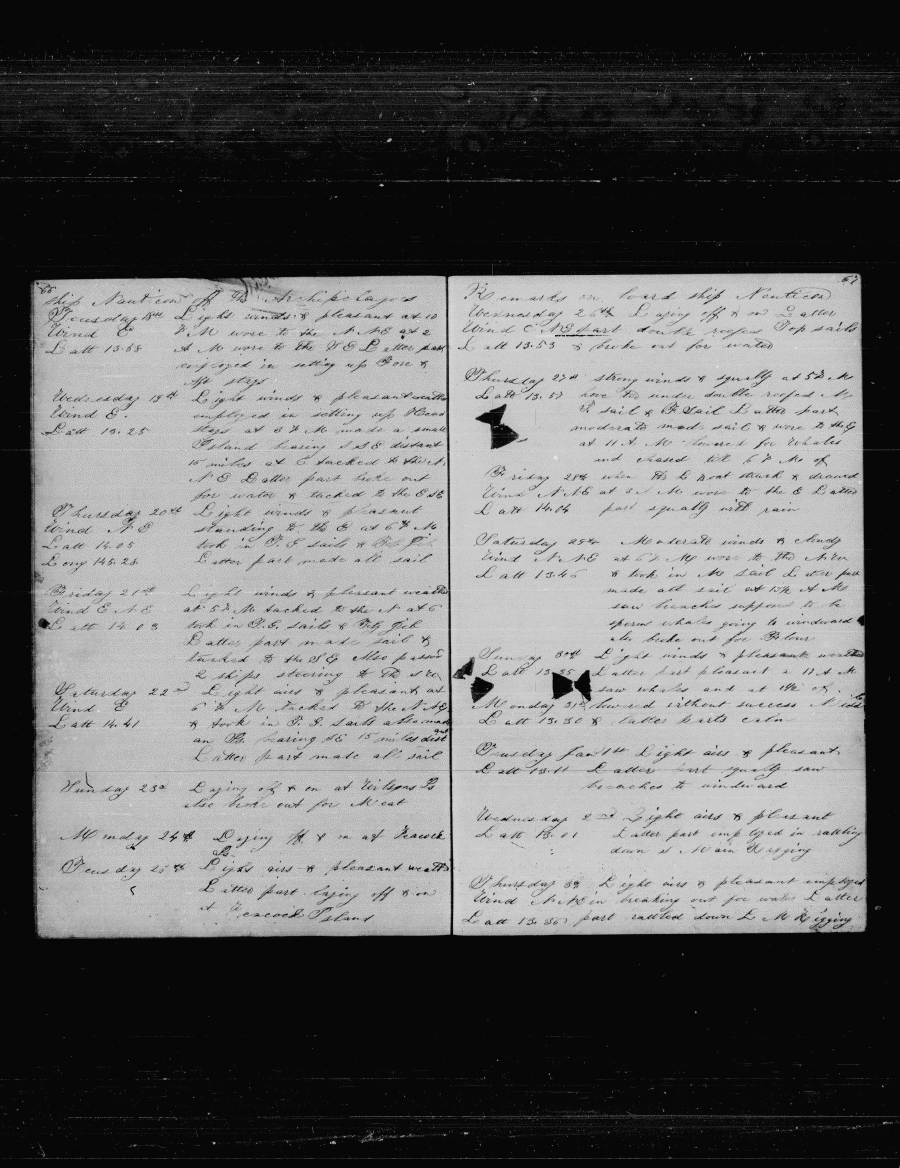 66
Ship Nauticon off the Archipelagos
Tuesday 18th Light winds & pleasant at 10
Wind E P M wore to the N N E at 2
Latt 13.58 A M wore to the S E Latter part
employed in setting up Fore &
Aft stays
Wednesday 19th Light winds & pleasant weather
Wind E. employed in setting up Head
Latt 13.25 stays at 3 P M made a small
Island bearing S S E distant
15 miles at 6 tacked to the N.
N E Latter part broke out
for water & tacked to the E S E
Thursday 20th Light winds & pleasant
Wind N E standing to the E at 6 P M
Latt 14.05 took in T. G sails & Jib
Long 145.28 Latter part made all sail
Friday 21st Light winds & pleasant weather
Wind E N E at 5 P M tacked to the N at 6
Latt 14 03 took in T. G. sails & Fly Jib
Latter part made sail &
tacked to the S E Also passed
2 ships steering to the S W
Saturday 22nd Light airs & pleasant at
Wind E 6 P M tacked to the N N E
Latt 14.41 & took in T. G sails also made
an Is. bearing S E 15 miles dist
Latter part made all sail
Sunday 23rd Laying off & on at Wilsons Is
also broke out for Meat
Monday 24th Laying off & on at Peacock
Is
Tuesday 25th Light airs & pleasant weather
Latter part laying off & on
at Peacock Island
67
Remarks on board ship Nauticon
Wednesday 26th Laying off & on Latter
Wind E N E part double reefed Top sails
Latt 13.53 & broke out for water
Thursday 27th strong winds & squally at 5 P M
Latt 13.57 wore to under double reefed M
T. sail & F Sail Latter part
moderate made sail & wore to the E
at 11 A. M lowered for Whales
and chased till 6 P M
Friday 28th when the L Boat struck & drawed
Wind N N E at 3 A M wore to the E Latter
Latt 14.04 part squally with rain
Saturday 29th Moderate winds & cloudy
Wind N. N E at 6 P M wore to the N W
Latt 13.46 & took in M sail Latter part
made all sail at A M
saw breaches supposed to be
sperm whales going to windward
also broke out for Flour
Sunday 30th Light winds & pleasant weather
Latt 13.35 Latter part pleasant a 11 A M
saw whales and at
Monday 31st lowered without success
Latt 13.30 & latter parts calm
Tuesday Jan 1st Light airs & pleasant
Latt 13.11 Latter part squally saw
breaches to windward
Wednesday 2nd Light airs & pleasant
Latt 13.01 Latter part employed in rattling
down Main Rigging
Thursday 3d Light airs & pleasant employed
Wind N. N E in breaking out for water Latter
Latt 13.30 part rattled down M Rigging